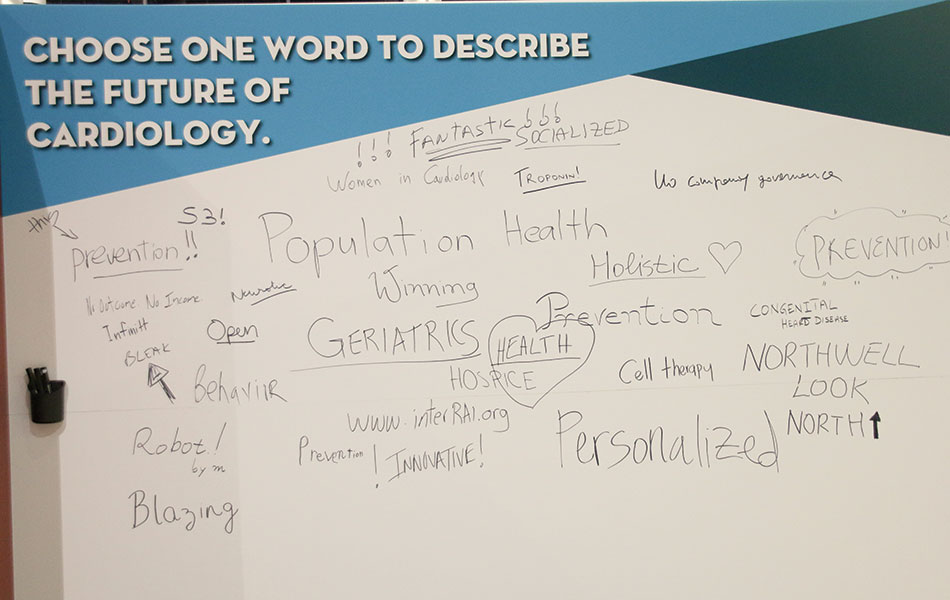 CHOOSE ONE WORD TO DESCRIBE
THE FUTURE OF
CARDIOLOGY.
!!! FANTASTIC
SOCIALIZED
Women in Cardiology
TROPONIN!
No company governence
S3!
Prevention!!
Population Health
Holistic
PREVENTION!
Winning
No Outcome No Income
Infinitt
BLEAK
Open
GERIATRICS
HEALTH
HOSPICE
Prevention
CONGENITAL
HEARD DISEASE
Cell therapy
NORTHWELL
LOOK
NORTH
Behaviir
www.interRAI.org
Robot!
by m
Prevention
! INNOVATIVE!
Personalized
Blazing